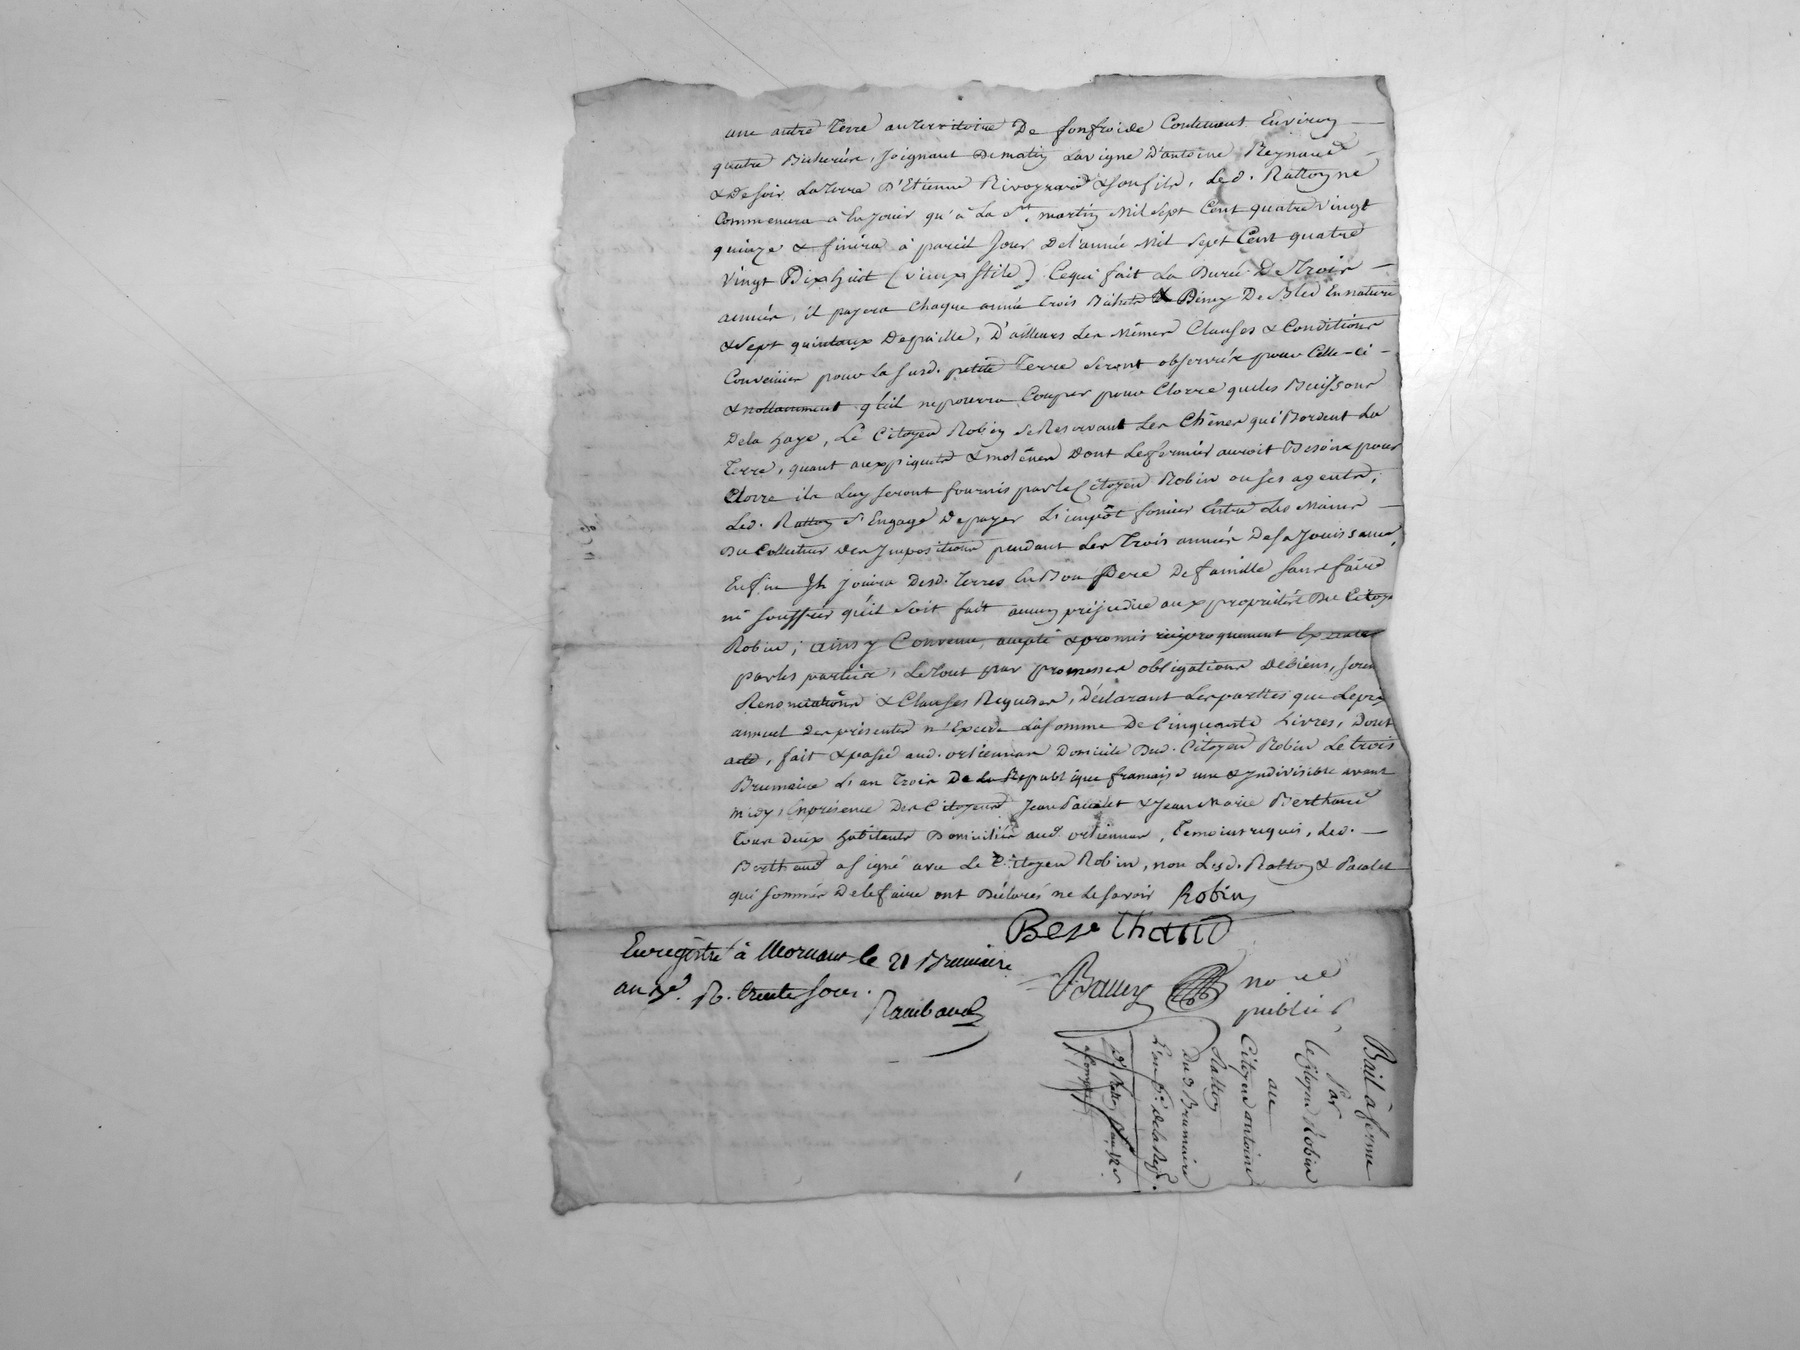 une autre Terre au Territoire De fonfroide Contenant Environ
quatre Bicherées, Joignant De matin La vigne D'antoine Reynaud
& De soir La terre D'Etienne Rivoyrard & son fils, Led. Ratton ne
Commencera à En jouir qu'à La St. martin Mil Sept Cent quatre vingt
quinze & finira à pareil Jour De l'année Mil Sept Cent quatre
Vingt Dix huit (vieux stile) Ce qui fait La Durée De Trois
années, il payera Chaque année trois Bichets De Bled En nature
& Sept quintaux De paille, D'ailleurs Les Mêmes Clauses & Conditions
Convenues pour la susd. petite Terre Seront observées pour Celle-ci
& nottamment qu'il ne pourra Couper pour Clorre que les Buissons
De la haye, Le Citoyen Robin Se Reservant Les Chênes qui Bordent La
Terre, quant aux piquets & Dont Le fermier auroit Besoin pour
Clorre ils Luy seront fournis par le Citoyen Robin ou ses agents,
Led. Ratton S'Engage De payer L'impôt foncier Entre Les Mains
Du Collecteur Des Impositions pendant Les Trois années De sa Jouissance,
Enfin Il Jouira Desd. Terres En Bon Pere De famille sans faire
ni souffrir qu'il soit fait aucun préjudice aux propriétés Du Citoyen
Robin; ainsy Convenu, accepté & promis réciproquement
par les parties, Le tout par promesses obligations De biens,
Renonciations & Clauses Requises, Déclarant Les parties que Le prix
annuel Des présentes n'Excede La somme De Cinquante Livres, Dont
acte, fait & passé aud. orlienas Domicile Dud. Citoyen Robin Le trois
Brumaire L'an Trois De La République française une & Indivisible avant
midy, En présence Des Citoyens Jean Pacalet & Jean Marie Berthaud
tous deux habitants Domiciliés aud. orlienas, Temoins requis, Led.
Berthaud a signé avec Le Citoyen Robin, non Lesd. Ratton & Pacalet
qui sommés De le faire ont Déclarés ne le savoir Robin
Berthaud
Enregistré à Mornant le 21 Brumaire
an 3e. R. trente sous.
Raimbaud
nore
public
Bail à ferme
Par
le Citoyen Robin
au
Citoyen antoine
Ratton
Du 3 Brumaire
L'an 3e. de la Rep.